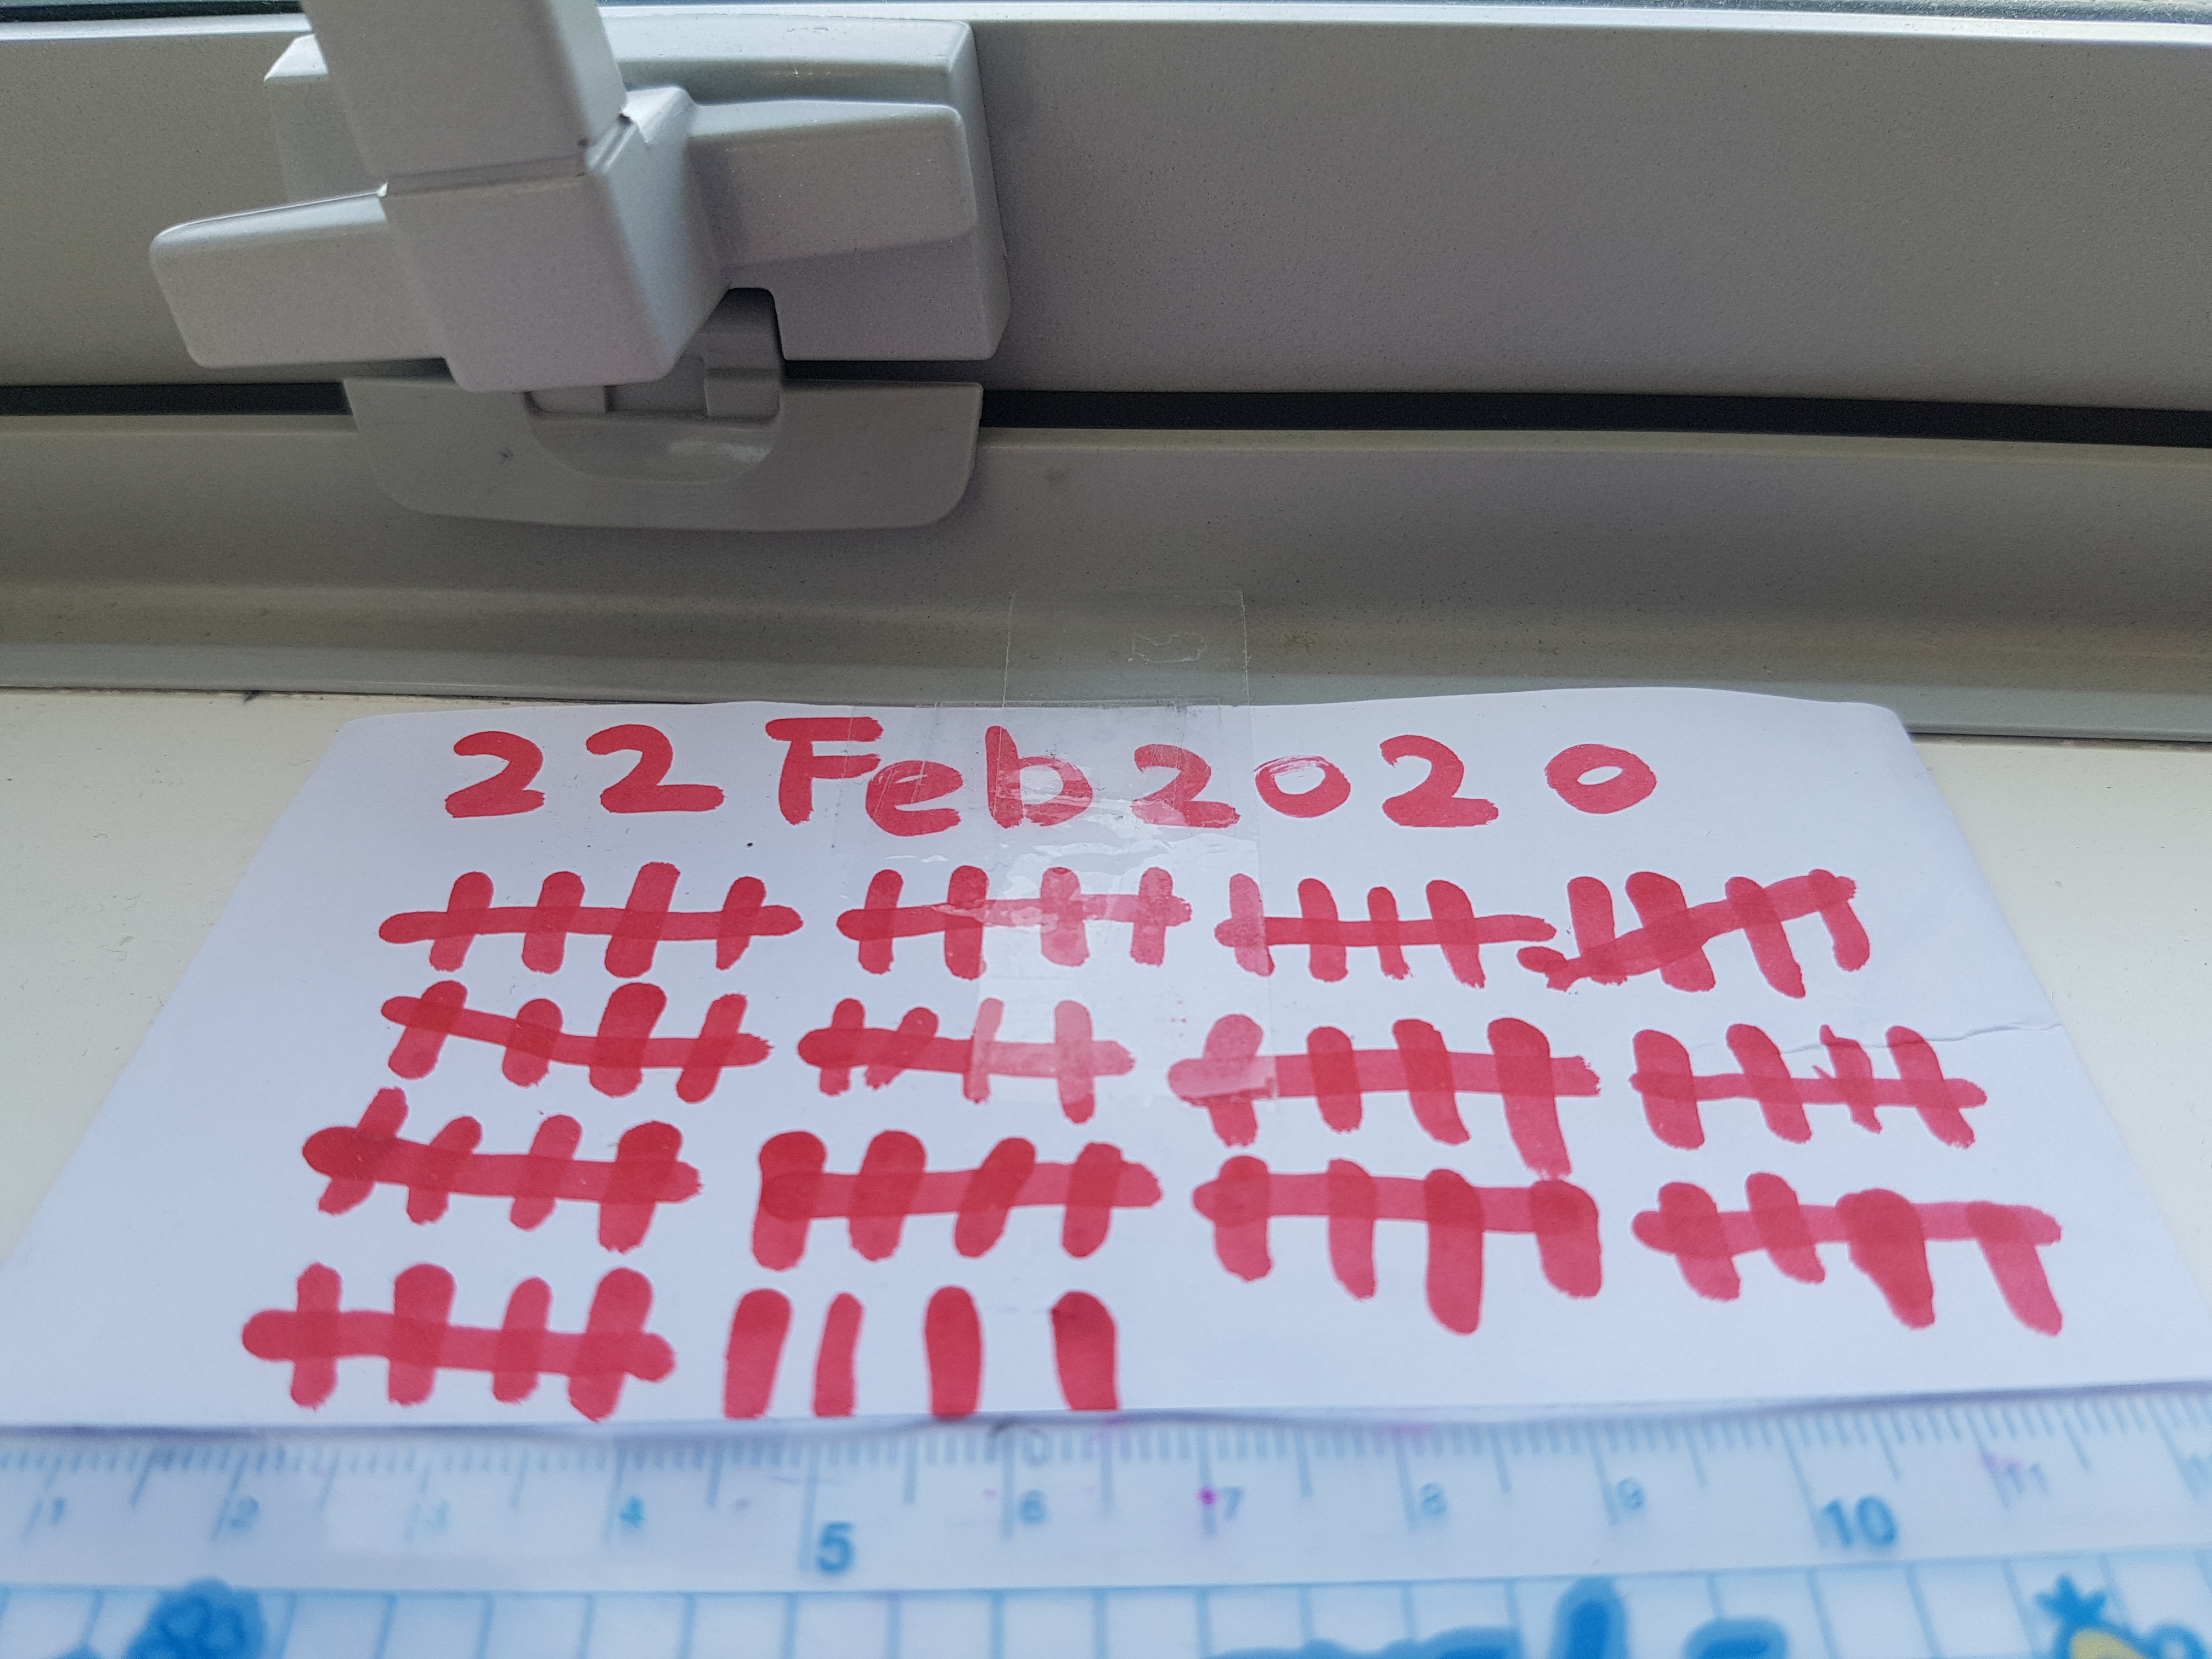 22 Feb 2020
1 2 3 4 5 6 7 8 9 10 11